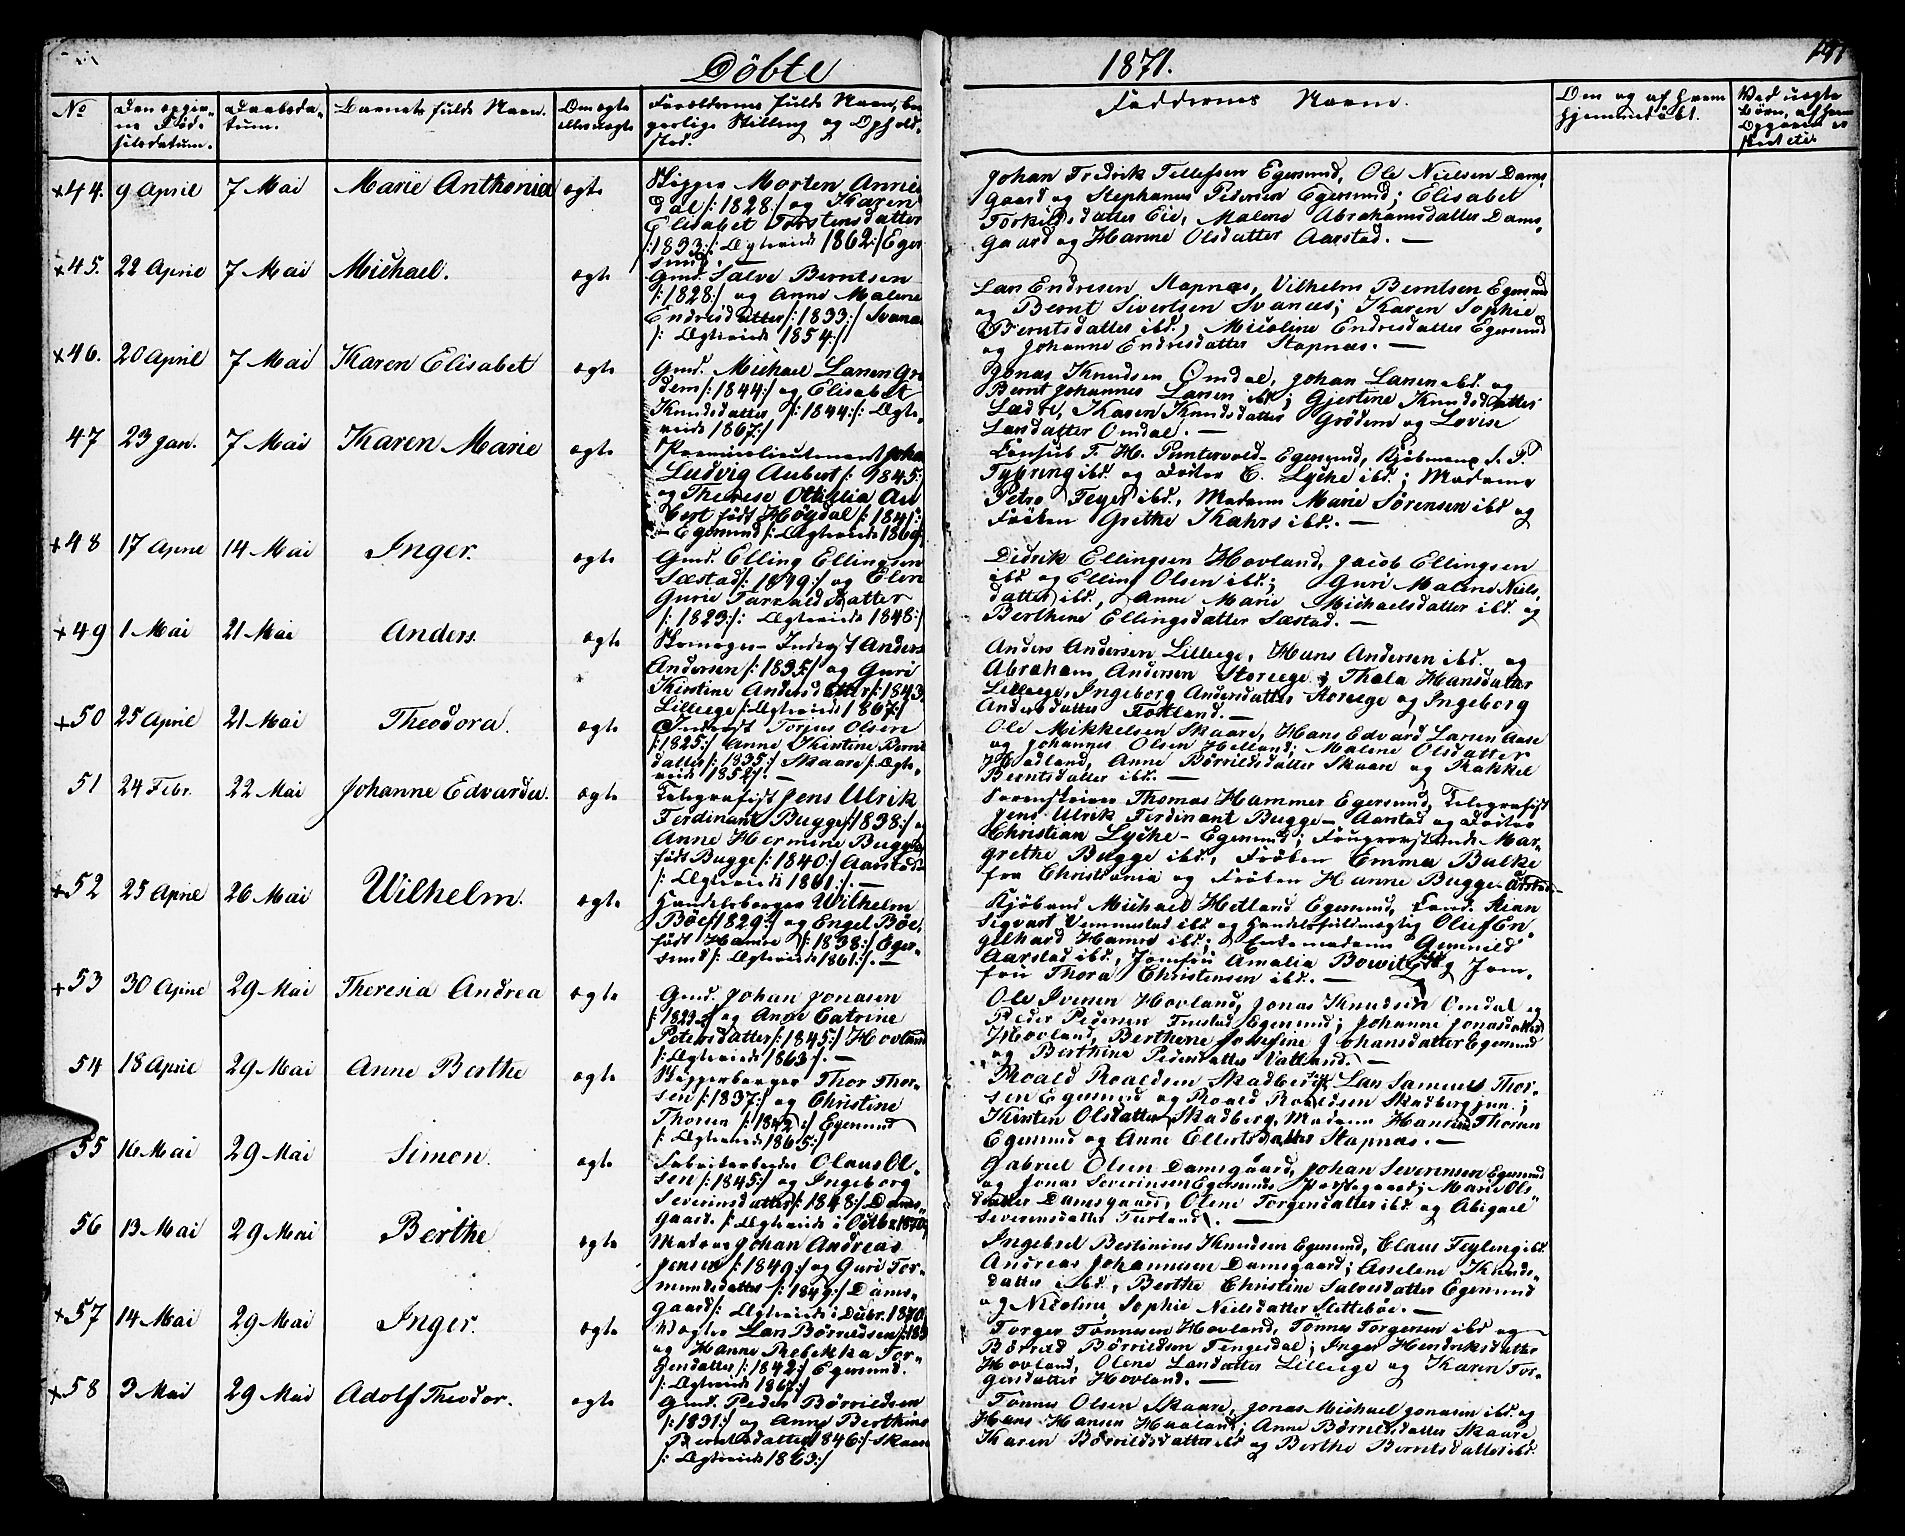 Döbte
1871.
No
Barnets fulde Navn.
Faddernes Navne.
+44. 9 April 7 Mai Marie Anthonia ægte
Skipper Morten Annie
dal /:1828:/ og Karen
Elisabet Torstensdatter
/:1833:/: Ægteviede 1862:/ Eger
sund. —
Johan Fredrik Tellefsen Egersund, Ole Nielsen Dams-
gaard og Stephanus Pedersen Egersund; Elisabet
Torkildsdatter Eie, Malene Abrahamsdatter Dams-
gaard og Hanne Olsdatter Aarstad. —
+45. 22 April 7 Mai Michael. ægte
Gmd. Salve Berntsen
/:1828:/ og Anne Malene
Endresdatter /:1833:/ Svanæs
/: Ægteviede 1854:/
Lars Endresen Stapnæs, Vilhelm Berntsen Egersund
og Bernt Sivertsen Svanæs; Karen Sophie
Berntsdatter ibd., Micoline Endresdatter Egersund
og Johanne Endresdatter Stapnæs. —
+46. 20 April 7 Mai Karen Elisabet ægte
Gmd. Michael Larsen Grö
dem /:1844:/ og Elisabet
Knudsdatter /:1844:/: Ægte-
viede 1867:/
Jonas Knudsen Omdal, Johan Larsen ibd. og
Bernt Johannes Larsen ibd; Gjertine Knudsdatter
Lædre, Karen Knudsdatter Grödem og Lovise
Larsdatter Omdal. —
47 23 Jan. 7 Mai Karen Marie ægte
Premierlieutenant Johan
Ludvig Aubert /:1845:/
og Therese Othilia Au
bert födt Høydal /:1841:/
— Egersund /: Ægteviede 1869:/
Consul F. H. Puntervold Egersund, Kjöbmand S. P.
Tybring ibd. og Doctor C. Lyche ibd.; Madame
Petra Feyer ibd., Madame Marie Sörensen ibd og
Fröken Grethe Kahrs ibd. —
+48 17 April 14 Mai Inger. ægte
Gmd. Elling Ellingsen
Sæstad /:1849:/ og Elen
Gurie Tarealdsdatter
/:1823:/: Ægteviede 1848:/
Didrik Ellingsen Hovland, Jacob Ellingsen
ibd og Elling Olsen ibd; Guri Malene Niels-
datter ibd., Anne Marie Michaelsdatter ibd. og
Berthine Ellingsdatter Sæstad. —
+49 1 Mai 21 Mai Anders. ægte
Skomager- Inderst Anders
Andersen /:1835:/ og Guri
Kirstine Andersdatter /:1843
Lilleege /: Ægteviede 1867:/
Anders Andersen Lilleege, Hans Andersen ibd. og
Abraham Andersen Storeege; Thala Hansdatter
Lilleege, Ingeborg Andersdatter Storeege og Ingeborg
Andersdatter Fotland. —
+50 25 April 21 Mai Theodora. ægte
Inderst Torjus Olsen
/:1825:/ Anne Kirstine Bernt
datter /:1835:/ Skaare /: Ægte-
viede 1858:/. —
Ole Mikkelsen Skaare, Hans Edvard Larsen Aase
og Johannes Olsen Helland; Malene Olsdatter
Hadland, Anne Börrildsdatter Skaare og Rakkel
Berntsdatter ibd. —
51 24 Febr. 22 Mai Johanne Edvarda. ægte
Telegrafist Jens Ulrik
Ferdinant Bugge /:1838:/ og
Anne Hermine Bugge
födt Bugge /:1840:/ Aarstad
/: Ægteviede 1861:/. —
Sorenskriver Thomas Hammer Egersund, Telegrafist
Jens Ulrik Ferdinant Bugge — Aarstad og Doctor
Christian Lyche — Egersund; Mar-
grethe Bugge ibd., Fröken Emma Bulke
fra Christiania og Fröken Hanne Bugge Aarstad —
+52 25 April 26 Mai Wilhelm. ægte
Handelsborger Wilhelm
Böe /:1829:/ og Engel Böe,
födt Hamre /:1838:/ Eger-
sund /: Ægteviede 1861:/. —
Kjöbmd Michael Hetland Egersund, Cand.
Sigvart Vemmestad ibd og Handelsfuldmægtig Oluf En
gelhard Hamre ibd.; Enkemadame Gunnild
Aarstad ibd., Jomfru Amalia Bowitz ibd og Jom-
fru Thora Christensen ibd. —
+53 30 April 29 Mai Theresia Andrea ægte
Gmd. Johan Jonasen
/:1823:/ og Anne Catrine
Petersdatter /:1845:/ Hovland
/: Ægteviede 1863:/. —
Ole Iversen Hovland, Jonas Knudsen Omdal og
Peder Pedersen Egersund; Johanne Jonasdatter
Hovland, Berthene Josefine Johansdatter Egersund
og Berthine Pedersdatter Vatland. —
54 18 April 29 Mai Anne Berthe ægte
Skipperborger Thor Thor-
sen /:1837:/ og Christine
Thorsen /:1842:/ Egersund
/: Ægteviede 1865:/
Roald Roaldsen Skadberg, Lars Samuel Thor-
sen Egersund og Roald Roaldsen Skadberg jun.;
Kirsten Olsdatter Skadberg, Madame Hansine Thorsen
Egersund og Anne Ellertsdatter Stapnæs. —
55 16 Mai 29 Mai Simon. ægte
Fabrikarbeider Olaus Ol-
sen /:1845:/ og Ingeborg
Severinsdatter /:1848:/ Dams-
gaard. /: Ægteviede i Octbr 1870:/
Gabriel Olsen Damsgaard, Johan Severinsen Egersund
og Jonas Severinsen Egersunds Præstegaard; Marie Ols
datter Damsgaard, Olene Torgersdatter ibd. og Abigael
Severinsdatter. —
56 13 Mai 29 Mai Berthe ægte
Matros Johan Andreas
Jensen /:1849:/ og Guri Tor-
mundsdatter /:1849:/ Dams-
gaard /: Ægteviede i Decbr. 1870:/
Ingebret Bertinius Knudsen Egersund, Claus Feyling ibd.
Andreas Johannesen Damsgaard; Asselene Knuds-
datter ibd., Berthe Christine Salvesdatter Egersund
og Nicoline Sophie Nielsdatter Slettebøe. —
+57 14 Mai 29 Mai Inger. ægte
Vægter Lars Börrildsen /:183
og Hanne Rebekka Tor-
gersdatter /:1842:/ Egersund.
/: Ægteviede 1867:/
Torger Tönnesen Hovland, Tönnes Torgersen ibd og
Börrild Börrildsen Tengesdal; Inger Hendriksdatter
Hovland, Olene Larsdatter Lilleege og Karen Tor-
gersdatter Hovland. —
+58 3 Mai 29 Mai Adolf Theodor. ægte
Gmd. Peder Börrildsen
/:1831:/ og Anne Berthine
Berntsdatter 1846:/ Skaare
/: Ægteviede 1863:/
Tönnes Olsen Skaare, Jonas Michael Jonasen ibd. og
Hans Hansen Haaland; Anne Börrildsdatter Skaare
Karen Börrildsdatter ibd og Berthe Berntsdatter ibd.